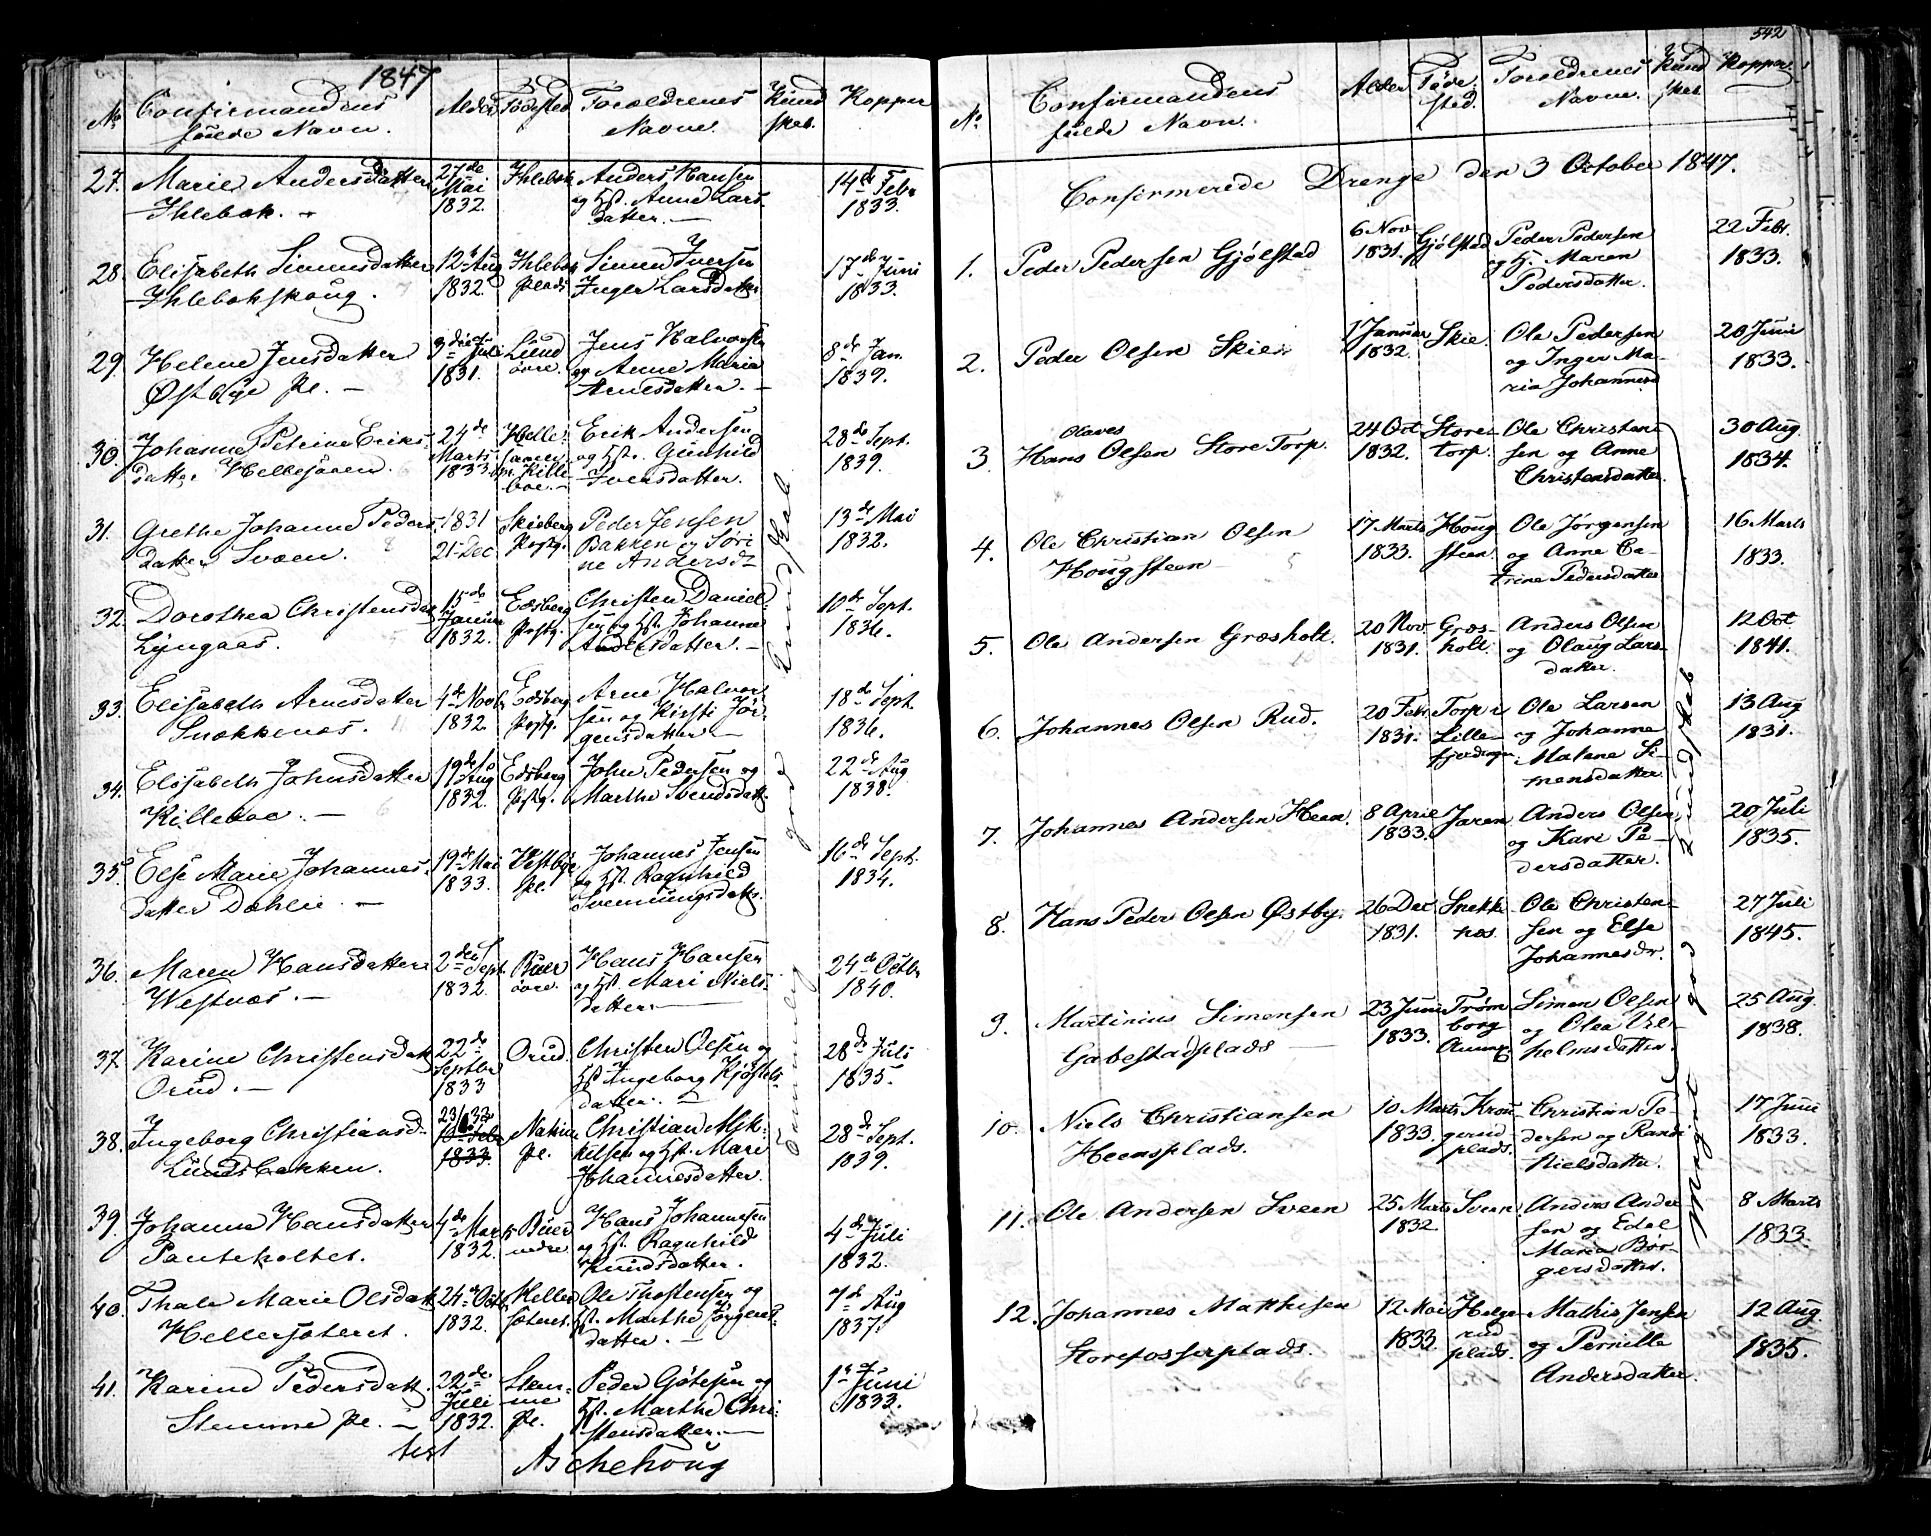 1847
No Confirmandens fulde Navn. Alder Fødested Forældrenes Navne. Kund skab. Kopper
27. Marie Andersdatter Ihlebæk. 27de Mai 1832. Ihlebæk Anders Hansen og Hst. Anne Larsdatter. 14de Febr 1833.
28. Elisabeth Simensdatter Ihlebækskoug. 12te Aug 1832. Ihlebæk Plads Simen Iversen Inger Larsdatter 17de Juni 1833.
29. Helene Jensdatter Østbye Pl. 3die Juli 1831. Lund øvre. Jens Halvorsen og Anne Marie Arnesdatter. 8de Jan. 1839.
30. Johanne Petrine Eriksdatter Hellesøeen. 24de Marts 1833 Erik Andersen og Hst. Gunhild Iversdatter. 28de Sept. 1839.
31. Grethe Johanne Pedersdatter Svæen. 1831 21 Dec Skieberg Prstg. Peder Jensen Bakken og Sørine Andersd 13de Mai 1832.
32. Dorothea Christensdat Lyngaas. 15de Januar 1832. Edsberg Prstg. Christen Danielsen og Hst. Johanne Andersdatter. 10de Sept. 1836.
33. Elisabeth Arnesdatter Snekkenæs. 4de Novbr 1832. Edsberg Prstg. Arne Halvorsen og Kirsti Jørgensdatter 18de Sept. 1836.
34. Elisabeth Johnsdatter Killeboe. 19de Aug 1832. Edsberg Prstg. John Pedersen og Marthe Svendsdatt. 22de Aug 1838.
35. Else Marie Johannesdatter Dahlie. 19de Mai 1833. Vestbye Pl. Johannes Jensen og Hst. Ragnhild Svenningsdattr. 16de Sept. 1834.
36. Maren Hansdatter Westnæs. 2den Sept. 1832. Buer øvre. Hans Hansen og Hst. Mari Nielsdatter. 24de Octbr 1840.
37. Karine Christensdatt Orud. 22de Septbr 1833 Orud. Christen Olsen og Hst Ingeborg Kjøstelsdatter. 28de Juli 1835.
38. Ingeborg Christiansd. Lundsbakken. 1833. Pl. Christian Mikkelsen og Hst. Mari Johannesdatter. 28de Sept. 1839.
39. Johanne Hansdatter Panteholtet. 4de Marts 1832. Buer nedre Hans Johannesen og Hst. Ragnhild Knudsdatter. 4de Juli 1832.
40. Thale Marie Olsdatt Hellersæteret. 24de Octbr 1832. Heller sæteret. Ole Thostensen og Hst. Marthe Jørgensdatter 7de Aug 1837.
41. Karine Pedersdatt. Stemme Pl. 22de Juli 1832. Stemme Pl. Peder Gøtesen og Hst. Marthe Christensdatter. 1te Juni 1833.
god Kundskab
test Aschehoug
542
No Confirmandens fulde Navn. Alder Føde sted. Forældrenes Navne. Kund skab Kopper
Confirmerede Drenge den 3 October 1847.
1. Peder Pedersen Gjølstad 6 Nov 1831. Gjølstad Peder Pedersen og H. Maren Pedersdatter. 22 Febr. 1833.
2. Peder Olsen Skie 1 Januar 1832. Skie. Ole Pedersen og Inger Maria Johannesd 20 Juni 1833.
3. Hans Olaves Olsen Store Torp. 24 Oct 1832. Store torp. Ole Christensen og Anne Christensdatter. 30 Aug. 1834.
4. Ole Christian Olsen Hougsteen 17 Marts 1833. Houg steen Ole Jørgensen og Anne Catrine Pedersdatter 16 Marts 1833.
5. Ole Andersen Græsholt. 20 Nov 1831. Græsholt. Anders Olsen og Olaug Larsdatter. 12 Oct. 1841.
6. Johannes Olsen Rud. 20 Febr 1831. Torp i Lille Ole Larsen og Johanne Malene Simensdatter. 13 Aug 1831.
7. Johannes Andersen Heen. 8 April 1833. Jaren Anders Olsen og Kari Pedersdatter. 20 Juli 1835.
8. Hans Peder Olsen Østby. 26 Dec 1831. Snekkenæs. Ole Christensen og Else Johannesdr. 27 Juli 1845.
9. Martinius Simensen Gabestadplads 23 Juni 1833. Trømborg Annex Simen Olsen og Olea Vilhelmsdatter. 25 Aug. 1838.
10. Niels Christiansen Heensplads. 10 Marts 1833. Krougerud plads. Christian Pedersen og Randi Nielsdatter. 17 Juni 1833.
11. Ole Andersen Sveen 25 Marts 1832. Sveen Anders Andersen og Edel Maria Børgersdatter. 8 Marts 1833.
12. Johannes Mathisen Storefosserplads. 12 Mai 1833. Helgerud plads. Mathis Jensen og Pernille Andersdatter. 12 Aug 1835.
Meget god Kundskab